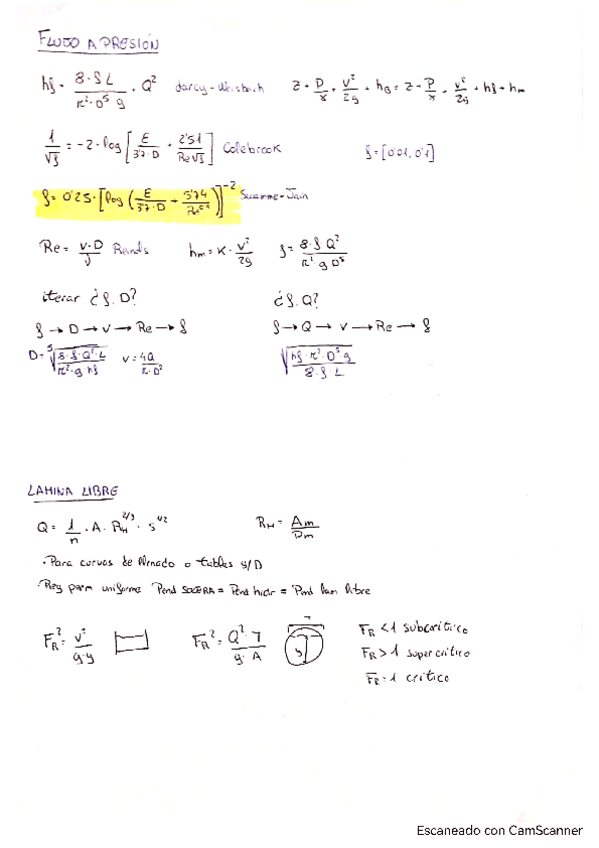 FLUJO A PRESIÓN
hf = 8·f·L / π²·D⁵·g · Q² darcy-Weisbach z + P/γ + v²/2g + hB = z + P/γ + v²/2g + hf + hm
1/√f = -2·log[ε/3'7·D + 2'51/Re√f] Colebrook f=[0'01, 0'1]
f = 0'25·[log(ε/3'7·D + 5'74/Re^0'9)]^-2 Swamme-Jain
Re = v·D/ν hm = K·v²/2g f = 8·f·Q²/π²·g·D⁵
iterar ¿f, D? ¿f, Q?
f → D → v → Re → f f → Q → v → Re → f
D = ⁵√(8·f·Q²·L/π²·g·hf) v = 4Q/π·D² √(hf·π²·D⁵·g/8·f·L)
LAMINA LIBRE
Q = 1/n · A · RH^2/3 · s^1/2 RH = Am/Pm
·Para curvas de llenado o tablas y/D
·Reg perm uniforme Pend SOLERA = Pend hidr = Pend lam libre
FR² = v²/g·y FR² = Q²·T/g·A y T FR < 1 subcrítico
FR > 1 supercrítico
FR = 1 crítico
Escaneado con CamScanner